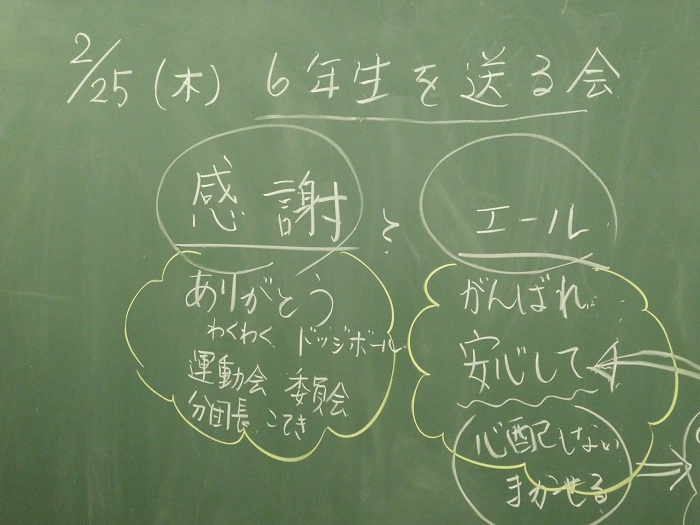 2/25(木) 6年生を送る会
感謝 と エール
ありがとう
わくわく ドッジボール
運動会 委員会
分団長 こてき
がんばれ
安心して
心配しない
まかせる